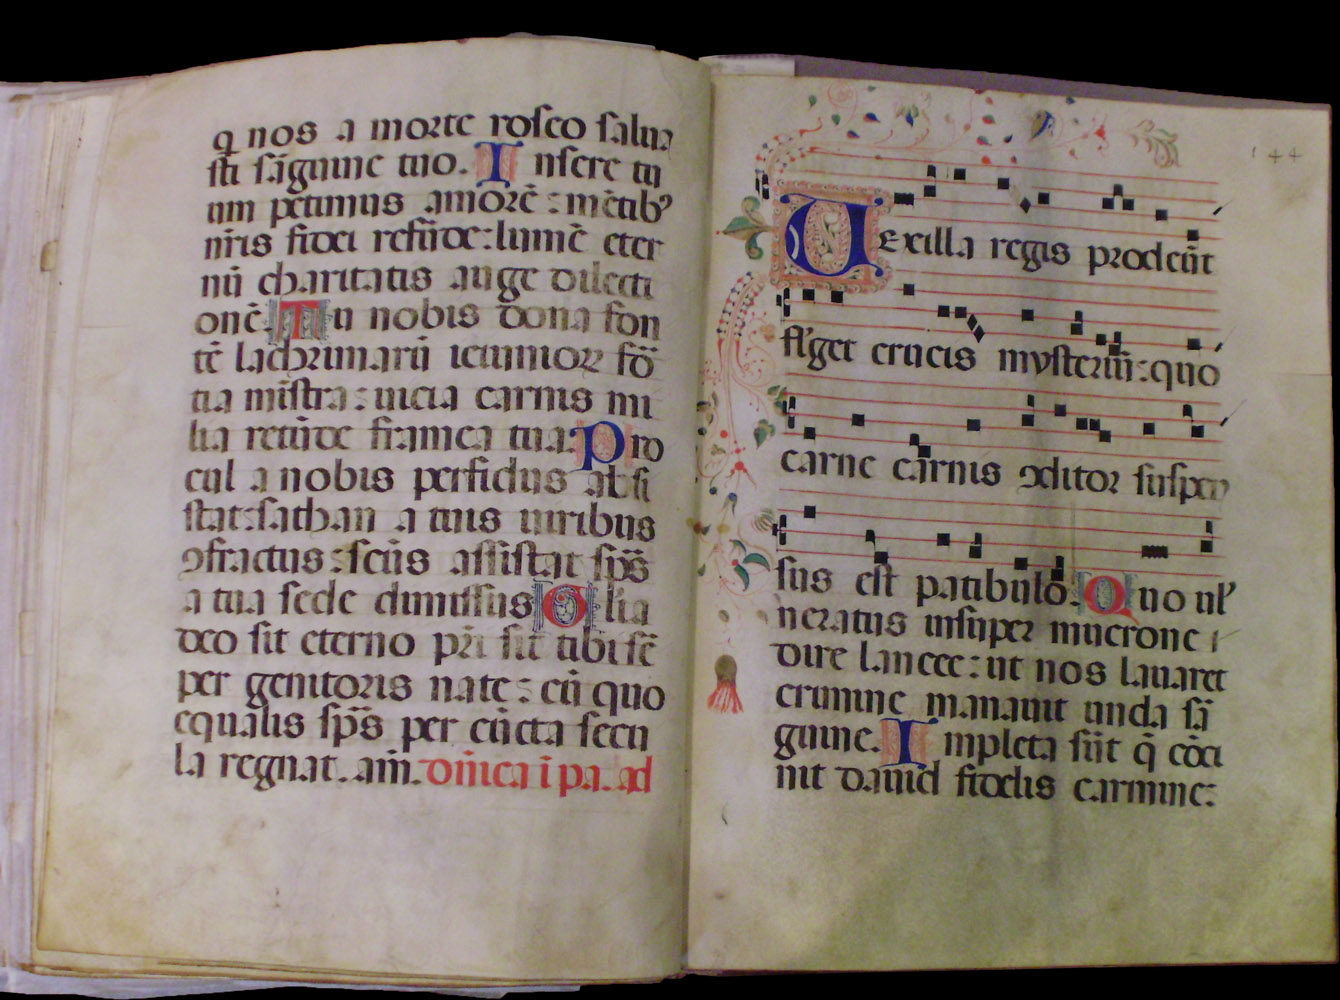 q̄ nos a morte roseo salua
sti sāguine tuo. Insere tu
um petimus amorē : mētibꝰ
nr̄is fidei refūde : lumē eter
nū charitatis auge dilecti
onē. Tu nobis dona fon
tē lachrimarū ieiunioꝝ fō
tia mīstra : uicia carnis mi
lia retūde framea tua : Pro
cul a nobis perfidus absi
stat : sathan a tuis uiribus
ꝯfractus : scūs assistat sp̄s
a tua sede dimissus Glīa
deo sit eterno pr̄i sit tibi sē
per genitoris nate : cū quo
equalis sp̄s per cūcta secu
la regnat. am̄. dn̄ica ī pa. ad
144
Uexilla regis prodeūt
fl'get crucis mysteriū : quo
carne carnis ꝯditor suspen
sus est patibulo. Quo ul'
neratus insuper mucrone
dire lancee : ut nos lauaret
crimine manauit unda sā
guine. Impleta sūt q̄ cōci
nit dauid fidelis carmine :